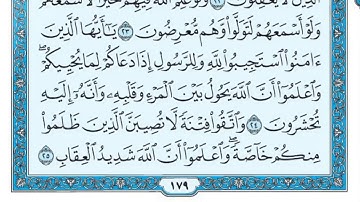 ٱلَّذِينَ لَا يَعۡقِلُونَ ٢٢ وَلَوۡ عَلِمَ ٱللَّهُ فِيهِمۡ خَيۡرٗا لَّأَسۡمَعَهُمۡۖ
وَلَوۡ أَسۡمَعَهُمۡ لَتَوَلَّواْ وَّهُم مُّعۡرِضُونَ ٢٣ يَٰٓأَيُّهَا ٱلَّذِينَ
ءَامَنُواْ ٱسۡتَجِيبُواْ لِلَّهِ وَلِلرَّسُولِ إِذَا دَعَاكُمۡ لِمَا يُحۡيِيكُمۡۖ
وَٱعۡلَمُوٓاْ أَنَّ ٱللَّهَ يَحُولُ بَيۡنَ ٱلۡمَرۡءِ وَقَلۡبِهِۦ وَأَنَّهُۥٓ إِلَيۡهِ
تُحۡشَرُونَ ٢٤ وَٱتَّقُواْ فِتۡنَةٗ لَّا تُصِيبَنَّ ٱلَّذِينَ ظَلَمُواْ
مِنكُمۡ خَآصَّةٗۖ وَٱعۡلَمُوٓاْ أَنَّ ٱللَّهَ شَدِيدُ ٱلۡعِقَابِ ٢٥
١٧٩